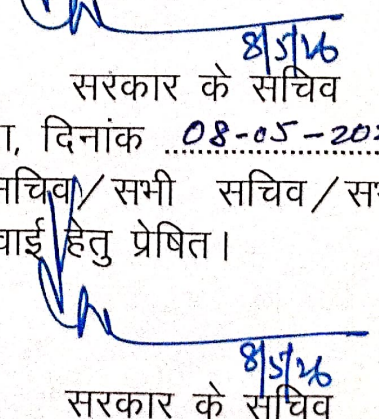 8/5/26
सरकार के सचिव
दिनांक 08-05-20
सचिव/ सभी सचिव/
हेतु प्रेषित।
8/5/26
सरकार के सचिव